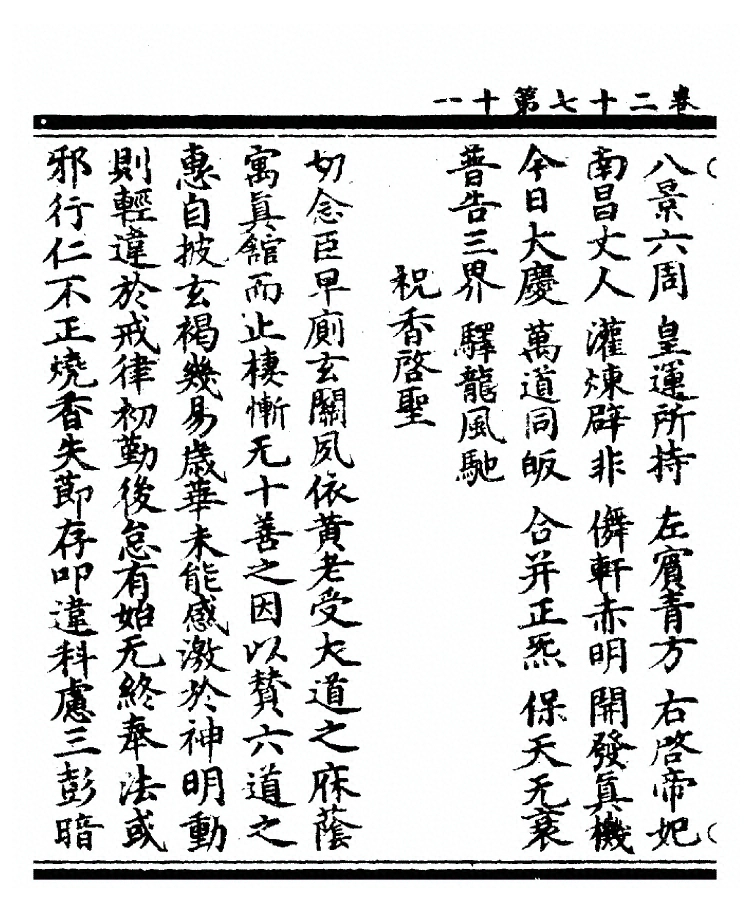 卷二十七第十一
八景六周 皇運所持 左賓青方 右啓帝妃
南昌丈人 灌煉辟非 儛軒赤明 開發眞機
今日大慶 萬道同皈 合并正炁 保天无衰
普告三界 驛龍風馳
祝香啓聖
切念臣早廁玄關夙依黃老受大道之庥蔭
寓眞舘而止棲慚无十善之因以賛六道之
惠自披玄褐幾易歲華未能感激於神明動
則輕違於戒律初勤後怠有始无終奉法或
邪行仁不正燒香失節存叩違科慮三彭暗